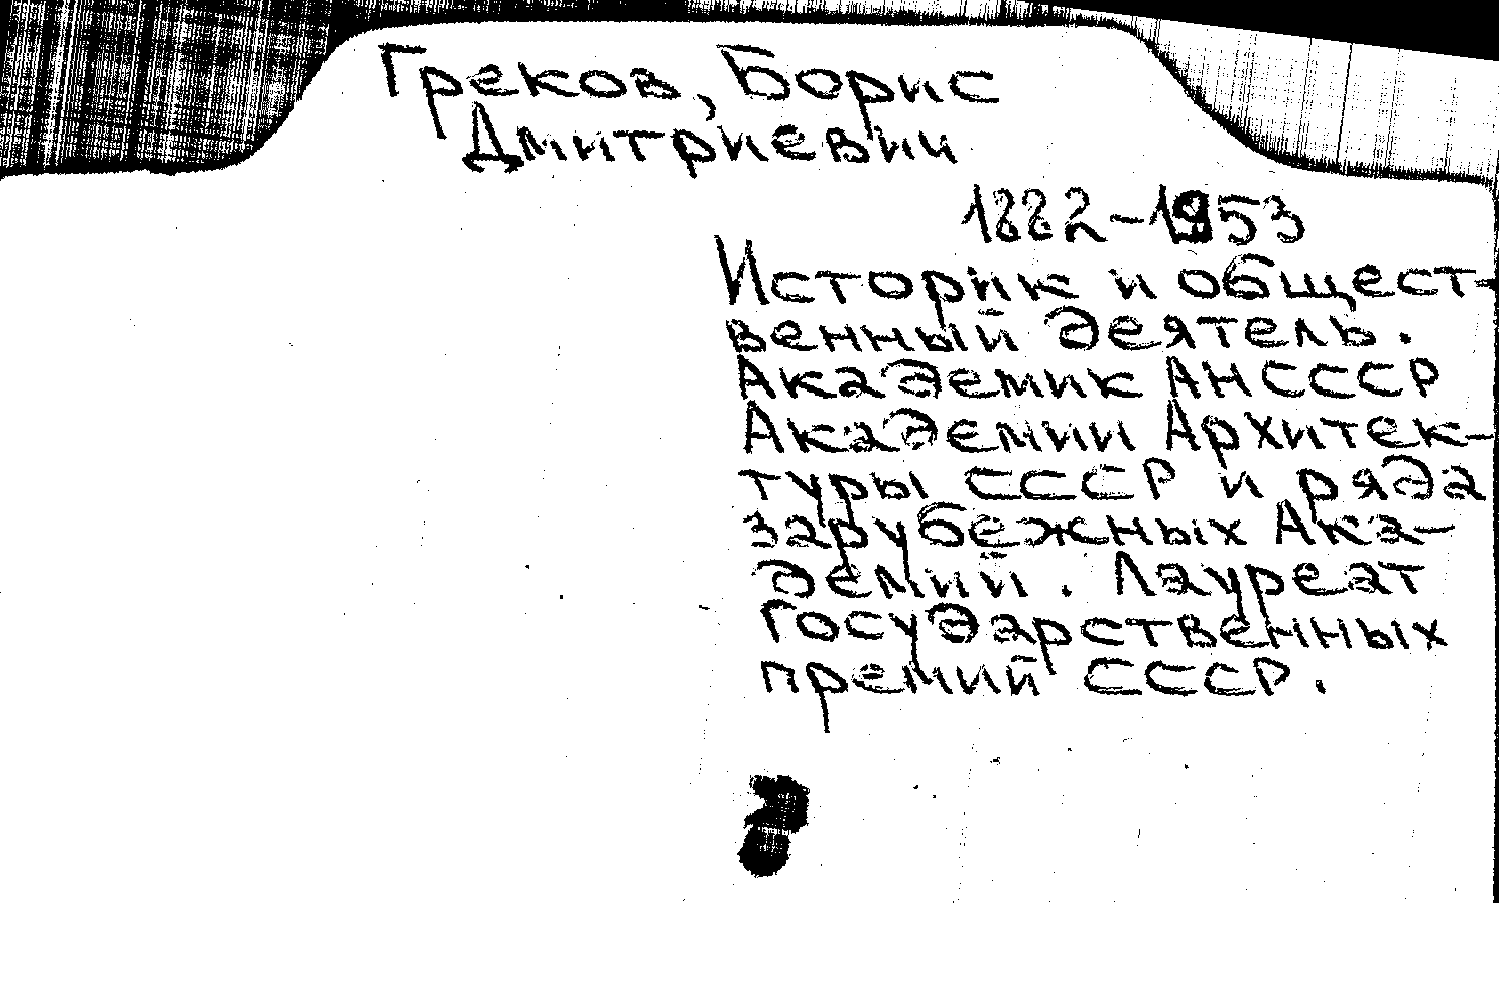 Греков, Борис
Дмитриевич
1882-1953
Историк и общест-
венный деятель.
Академик АН СССР
Академии Архитек-
туры СССР и ряда
зарубежных Ака-
демий. Лауреат
Государственных
премий СССР.